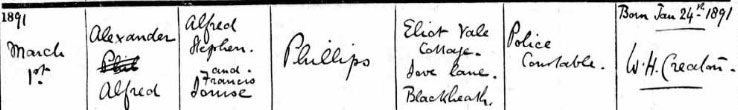 1891
March
1st
Alexander
Alfred
Alfred
Stephen.
and
Francis
Louise
Phillips
Eliot Vale
Cottage.
Dove Lane.
Blackheath.
Police
Constable.
Born Jan 24th 1891
W. H. Creaton.